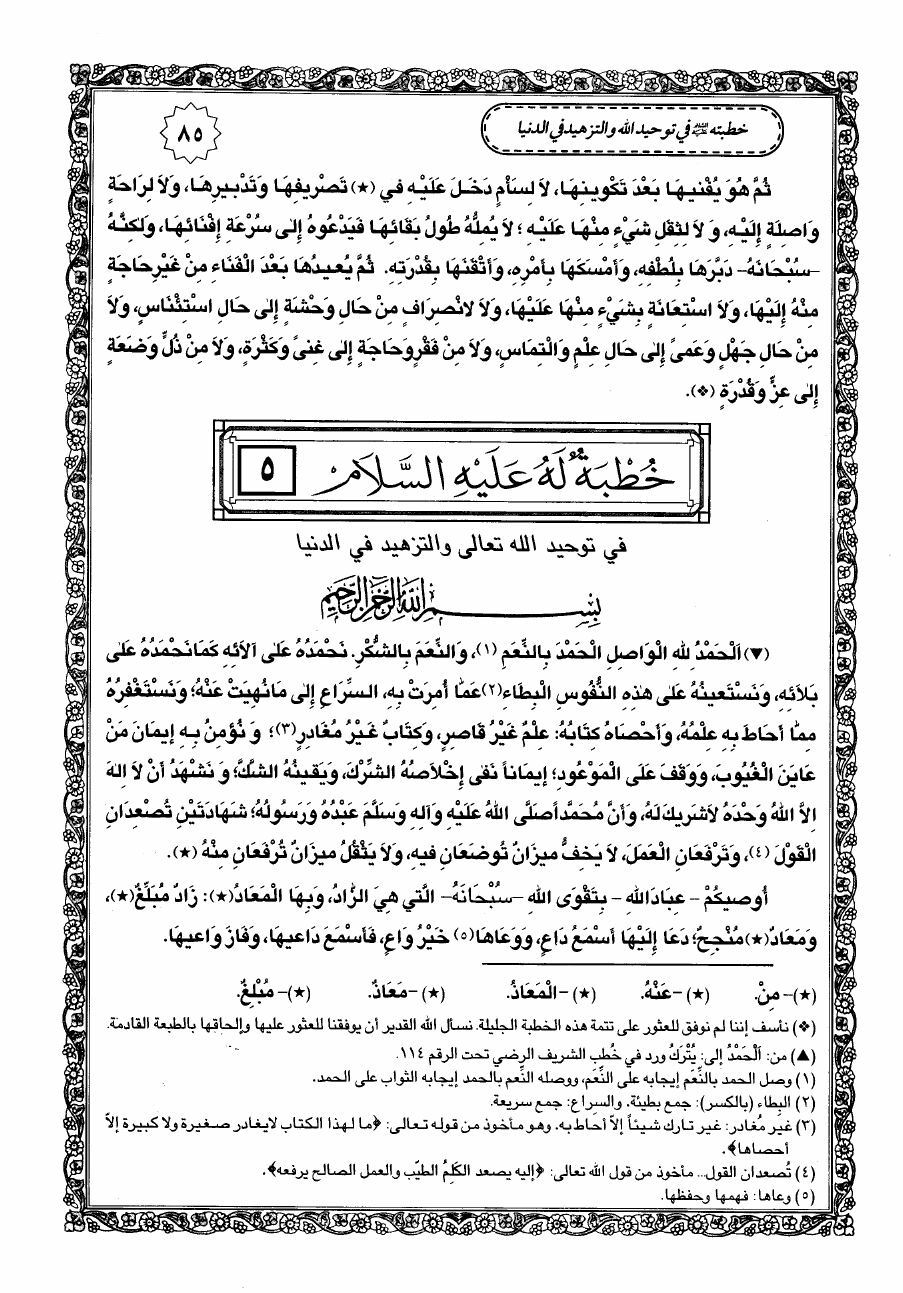 خطبته عليه السلام في توحيد الله والتزهيد في الدنيا
٨٥
ثُمَّ هُوَ يُفْنِيهَا بَعْدَ تَكْوِينِهَا، لاَ لِسَأْمٍ دَخَلَ عَلَيْهِ في (★) تَصْرِيفِهَا وَتَدْبِيرِهَا، وَلاَ لِرَاحَةٍ
وَاصِلَةٍ إِلَيْهِ، وَ لاَ لِثِقَلِ شَيْءٍ مِنْهَا عَلَيْهِ ؛ لاَ يُمِلُّهُ طُولُ بَقَائِهَا فَيَدْعُوهُ إِلى سُرْعَةِ إِفْنَائِهَا، وَلكِنَّهُ
–سُبْحَانَهُ– دَبَّرَهَا بِلُطْفِهِ، وَأَمْسَكَهَا بِأَمْرِهِ، وَأَتْقَنَهَا بِقُدْرَتِهِ. ثُمَّ يُعِيدُهَا بَعْدَ الْفَنَاءِ مِنْ غَيْرِ حَاجَةٍ
مِنْهُ إِلَيْهَا، وَلاَ اسْتِعَانَةٍ بِشَيْءٍ مِنْهَا عَلَيْهَا، وَلاَ لانْصِرَافٍ مِنْ حَالِ وَحْشَةٍ إِلى حَالِ اسْتِئْنَاسٍ، وَلاَ
مِنْ حَالِ جَهْلٍ وَعَمىً إِلى حَالِ عِلْمٍ وَالْتِمَاسٍ، وَلاَ مِنْ فَقْرٍ وَحَاجَةٍ إِلى غِنىً وَكَثْرَةٍ، وَلاَ مِنْ ذُلٍّ وَضَعَةٍ
إِلى عِزٍّ وَقُدْرَةٍ (❖).
خُطْبَةٌ لَهُ عَلَيْهِ السَّلَامُ
٥
في توحيد الله تعالى والتزهيد في الدنيا
بِسْمِ اللهِ الرَّحْمنِ الرَّحِيمِ
(▼) اَلْحَمْدُ للهِ الْوَاصِلِ الْحَمْدَ بِالنِّعَمِ (١)، وَالنِّعَمَ بِالشُّكْرِ. نَحْمَدُهُ عَلى آلاَئِهِ كَمَا نَحْمَدُهُ عَلى
بَلاَئِهِ، وَنَسْتَعِينُهُ عَلى هذِهِ النُّفُوسِ الْبِطَاءِ (٢) عَمَّا أُمِرَتْ بِهِ، السِّرَاعِ إِلى مَا نُهِيَتْ عَنْهُ؛ وَنَسْتَغْفِرُهُ
مِمَّا أَحَاطَ بِهِ عِلْمُهُ، وَأَحْصَاهُ كِتَابُهُ: عِلْمٌ غَيْرُ قَاصِرٍ، وَكِتَابٌ غَيْرُ مُغَادِرٍ (٣)؛ وَ نُؤْمِنُ بِهِ إِيمَانَ مَنْ
عَايَنَ الْغُيُوبَ، وَوَقَفَ عَلَى الْمَوْعُودِ؛ إِيمَاناً نَفى إِخْلاَصُهُ الشِّرْكَ، وَيَقِينُهُ الشَّكَّ؛ وَ نَشْهَدُ أَنْ لاَ اِلهَ
اِلاَّ اللهُ وَحْدَهُ لاَ شَرِيكَ لَهُ، وَأَنَّ مُحَمَّداً صَلَّى اللهُ عَلَيْهِ وَآلِهِ وَسَلَّمَ عَبْدُهُ وَرَسُولُهُ؛ شَهَادَتَيْنِ تُصْعِدَانِ
الْقَوْلَ (٤)، وَتَرْفَعَانِ الْعَمَلَ، لاَ يَخِفُّ مِيزَانٌ تُوضَعَانِ فِيهِ، وَلاَ يَثْقُلُ مِيزَانٌ تُرْفَعَانِ مِنْهُ (★).
أُوصِيكُمْ – عِبَادَ اللهِ – بِتَقْوَى اللهِ –سُبْحَانَهُ– الَّتي هِيَ الزَّادُ، وَبِهَا الْمَعَادُ (★): زَادٌ مُبَلِّغٌ (★)،
وَمَعَادٌ (★) مُنْجِحٌ؛ دَعَا إِلَيْهَا أَسْمَعُ دَاعٍ، وَوَعَاهَا (٥) خَيْرُ وَاعٍ، فَأَسْمَعَ دَاعِيهَا، وَفَازَ وَاعِيهَا.
(★)– مِنْ. (★) –عَنْهُ. (★) –الْمَعَاذُ. (★) –مَعَاذٌ. (★)– مُبْلِغٌ.
(❖) نأسف إننا لم نوفق للعثور على تتمة هذه الخطبة الجليلة. نسأل الله القدير أن يوفقنا للعثور عليها وإلحاقها بالطبعة القادمة.
(▲) من: اَلْحَمْدُ إلى: يُتْرَكُ ورد في خُطب الشريف الرضي تحت الرقم ١١٤.
(١) وصل الحمد بالنِّعم إيجابه على النِّعم، ووصله النِّعم بالحمد إيجابه الثواب على الحمد.
(٢) البِطاء (بالكسر): جمع بطيئة. والسراع: جمع سريعة.
(٣) غير مُغادر: غير تارك شيئاً إلاّ أحاط به. وهو مأخوذ من قوله تعالى: ﴿ما لهذا الكتاب لايغادر صغيرة ولا كبيرة إلاّ
أحصاها﴾.
(٤) تُصعدان القول... مأخوذ من قول الله تعالى: ﴿إليه يصعد الكَلِمُ الطيّب والعمل الصالح يرفعه﴾.
(٥) وعاها: فهمها وحفظها.